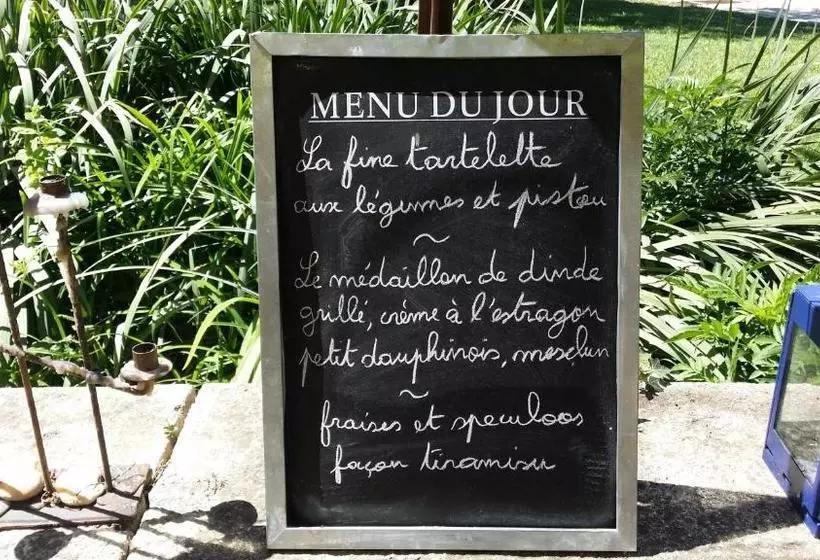 MENU DU JOUR
La fine tartelette
aux légumes et pistou
~
Le médaillon de dinde
grillé, crème à l'estragon
petit dauphinois, mesclun
~
fraises et speculoos
façon tiramisu